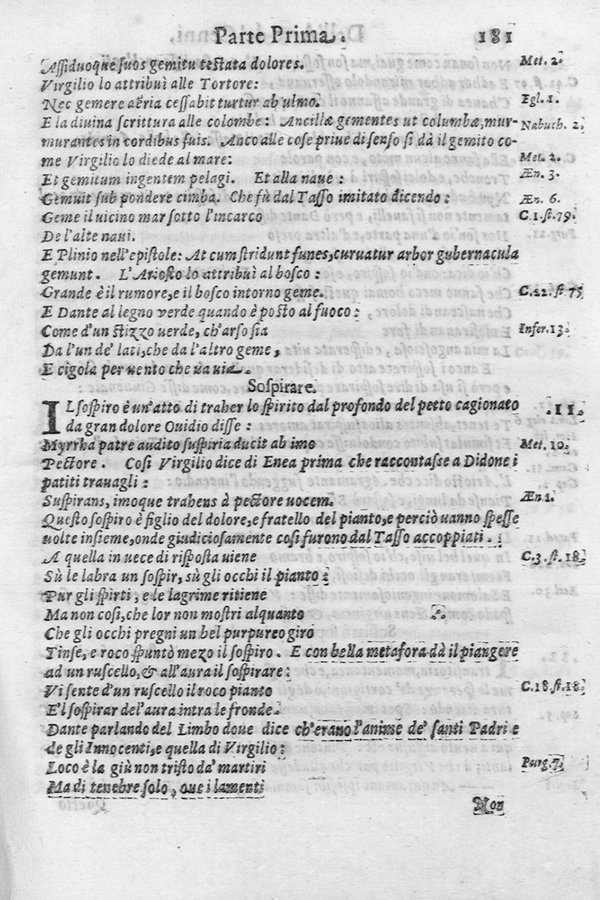 Parte Prima. 181
Assiduoque suos gemitu testata dolores. Met. 2.
Virgilio lo attribuì alle Tortore:
Nec gemere aëria cessabit turtur ab ulmo. Egl. 1.
E la divina scrittura alle colombe: Ancillæ gementes ut columbæ, mur- Nabuch. 2.
murantes in cordibus suis. Anco alle cose priue di senso si dà il gemito co-
me Virgilio lo diede al mare: Met. 2.
Et gemitum ingentem pelagi. Et alla naue: Æn. 3.
Gemuit sub pondere cimba. Che fù dal Tasso imitato dicendo: Æn. 6.
Geme il uicino mar sotto l'incarco C. 1. st. 79.
De l'alte naui.
E Plinio nell'epistole: At cum stridunt funes, curuatur arbor gubernacula
gemunt. L'Ariosto lo attribuì al bosco:
Grande è il rumore, e il bosco intorno geme. C. 22. st. 75
E Dante al legno verde quando è posto al fuoco:
Come d'un stizzo uerde, ch'arso sia Infer. 13.
Da l'un de' lati, che da l'altro geme,
E cigola per uento che ua uia.
Sospirare.
IL sospiro è un'atto di traher lo spirito dal profondo del petto cagionato .11.
da gran dolore Ouidio disse:
Myrrha patre audito suspiria ducit ab imo Met. 10.
Pectore. Così Virgilio dice di Enea prima che raccontasse a Didone i
patiti trauagli:
Suspirans, imoque trahens à pectore uocem. Æn 1.
Questo sospiro è figlio del dolore, e fratello del pianto, e perciò uanno spesse
uolte insieme, onde giudiciosamente così furono dal Tasso accoppiati.
A quella in uece di risposta uiene C. 3. st. 18.
Sù le labra un sospir, sù gli occhi il pianto:
Pur gli spirti, e le lagrime ritiene
Ma non così, che lor non mostri alquanto
Che gli occhi pregni un bel purpureo giro
Tinse, e roco spuntò mezo il sospiro. E con bella metafora dà il piangere
ad un ruscello, & all'aura il sospirare:
Vi sente d'un ruscello il roco pianto C. 18. st. 18.
E'l sospirar de l'aura intra le fronde.
Dante parlando del Limbo doue dice ch'erano l'anime de' santi Padri e
de gli Innocenti, e quella di Virgilio:
Loco è la giù non tristo da' martiri Purg. 7.
Ma di tenebre solo, oue i lamenti
Non